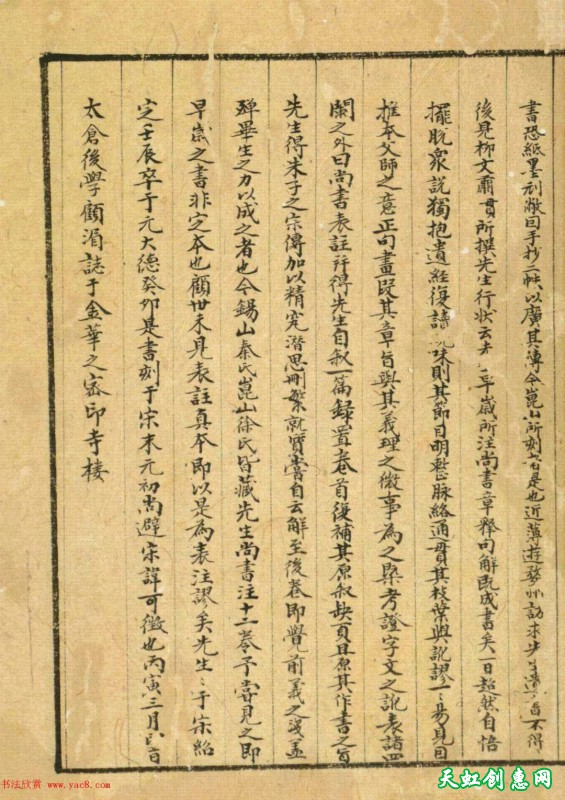 書恐紙墨刓敝因手抄二帙以廣其傳今崑山所刻者是也近薄遊婺州訪求先生遺書不得
後見柳文肅貫所撰先生行狀云先早歲所注尚書章釋句解既成書矣一日超然自悟
擺脫衆說獨抱遺經復讀味則其節目明整脈絡通貫其枝葉與訛謬一一易見因
推本父師之意正句畫段其章旨與其義理之微事為之槩考證字文之訛表諸四
闌之外曰尚書表註并得先生自叙一篇録置卷首復補其原叙缺頁且原其作書之旨
先生得朱子之宗傳加以精究潛思刪繁就實嘗自云解至後卷即覺前義之淺蓋
殫畢生之力以成之者也今錫山秦氏崑山徐氏皆藏先生尚書注十二卷予嘗見之即
早歲之書非定本也顧世未見表註真本即以是為表注謬矣先生生于宋紹
定壬辰卒于元大德癸卯是書刻于宋末元初尚避宋諱可徵也丙寅三月
太倉後學顧湄誌于金華之密印寺樓
书法欣赏 www.yac8.com
天虹创惠网